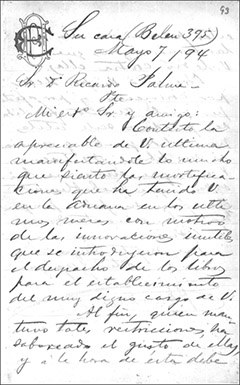 93
Su casa (Belen 395)
Mayo 7/94
Sr. D. Ricardo Palma
Pte.
Mi est. Sr. y amigo:
Contesto la
apreciable de V. ultima
manifestandole lo mucho
que siento las mortifica
ciones que ha tenido V.
en la Aduana en los ulti
mos meses con motivo
de las innovaciones inutiles
que se introdujeron para
el despacho de los libros
para el establecimiento
del muy digno cargo de V.
Al fin, quien man
tuvo tales restricciones, ha
saboreado el gusto de ellas,
y á la hora de esta debe